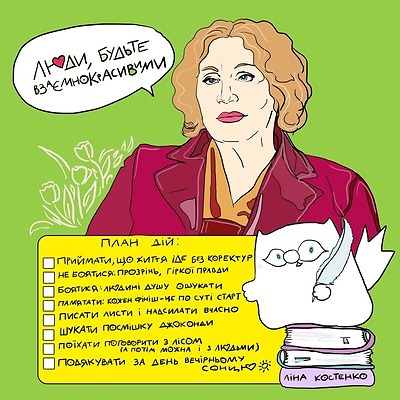 ЛЮДИ, БУДЬТЕ
ВЗАЄМНОКРАСИВИМИ
ПЛАН ДІЙ:
ПРИЙМАТИ, ЩО ЖИТТЯ ІДЕ БЕЗ КОРЕКТУР
НЕ БОЯТИСЯ: ПРОЗРІНЬ, ГІРКОЇ ПРАВДИ
БОЯТИСЯ: ЛЮДИНІ ДУШУ ОШУКАТИ
ПАМ'ЯТАТИ: КОЖЕН ФІНІШ-ЦЕ ПО СУТІ СТАРТ
ПИСАТИ ЛИСТИ І НАДСИЛАТИ ВЧАСНО
ШУКАТИ ПОСМІШКУ ДЖОКОНДИ
ПОЇХАТИ ПОГОВОРИТИ З ЛІСОМ
(А ПОТІМ МОЖНА І З ЛЮДЬМИ)
ПОДЯКУВАТИ ЗА ДЕНЬ ВЕЧІРНЬОМУ
СОНЦЮ
ЛІНА КОСТЕНКО